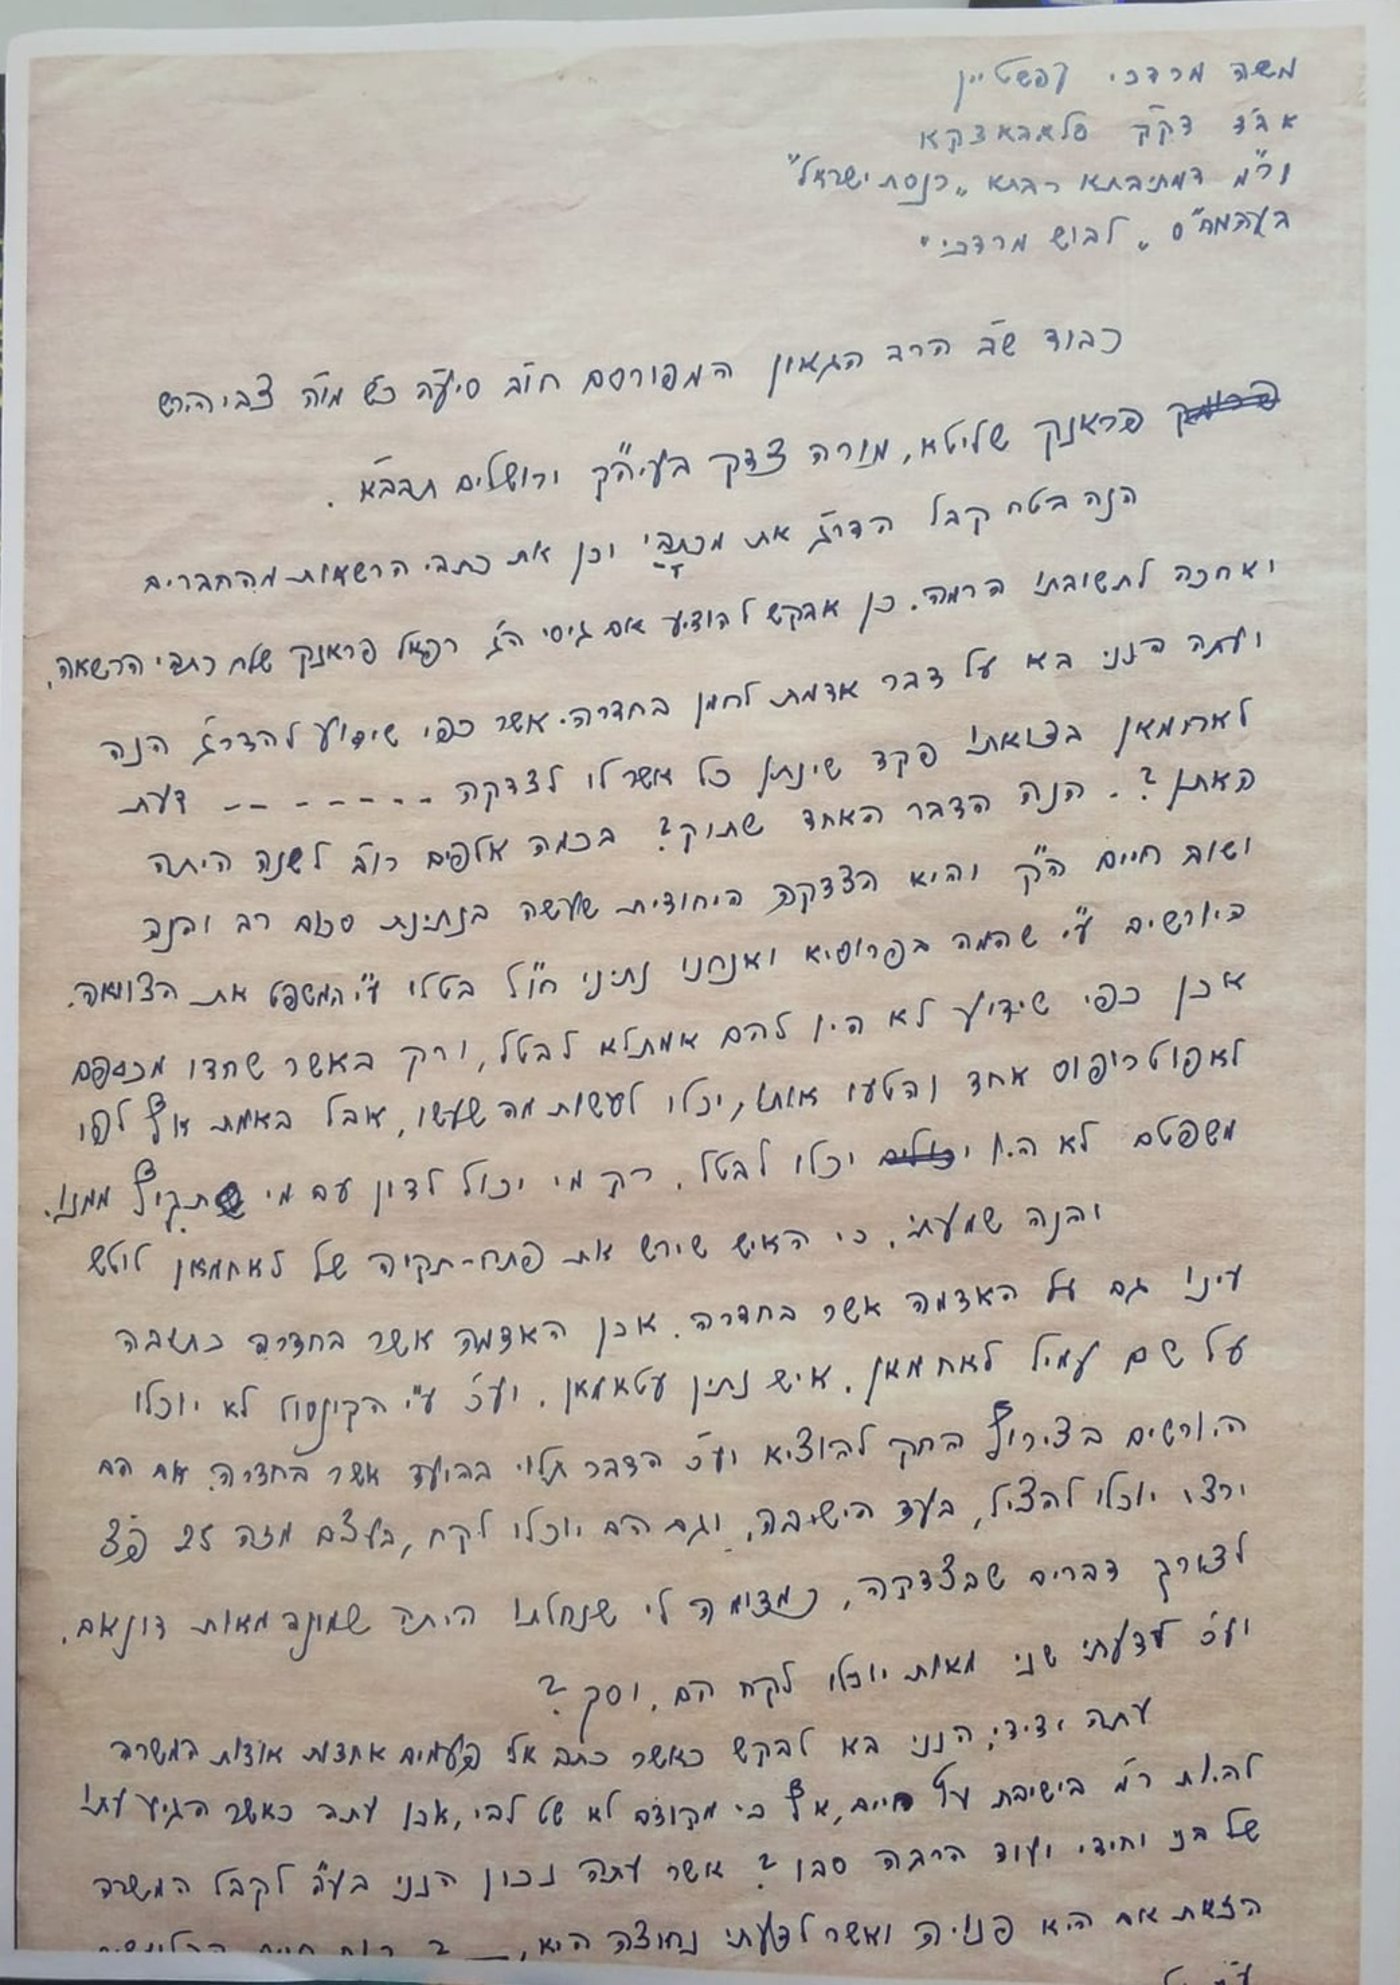 משה מרדכי עפשטיין
אב"ד דק"ק סלאבאצקא
ור"מ דמתיבתא רבתא „כנסת ישראל"
בעהמח"ס „לבוש מרדכי"
כבוד ש"ב הרב הגאון המפורסם חו"ב סיע"ה כש מו"ה צבי הירש
פראנק שליטא, מורה צדק בעיה"ק ירושלים תבב"א.
הנה בטח קבל הדר"ג את מכתבי וכן את כתבי הרשאות מהחברים
ואחכה לתשובתו הרמה. כן אבקש להודיע אם גיסי הג' רפאל פראנק שלח כתבי הרשאה.
ועתה הנני בא על דבר אדמת לחמן בחדרה. אשר כפי שידוע להדר"ג הנה
לאחמאן בצואתו פקד שינתן כל אשר לו לצדקה -------- דעת
האתן? - הנה הדבר האחד שתוק? בכמה אלפים רו"כ לשנה היתה
ושוב חיים הק' והיא הצדקה היחודית שעשה בנתינת סכום רב והנה
היורשים ע"י שהמה בפרוסיא ואנחנו נתיני חו"ל בטלו ע"י המשפט את הצוואה.
אכן כפי שידוע לא היו להם אמתלא לבטל, ורק באשר שחדו מכספם
לאפוטריפוס אחד והטעו אותו, יכלו לעשות מה שעשו, אבל באמת אף לפי
משפטם לא היו יכולים יכלו לבטל. רק מי יכול לדון עם מי שתקיף ממנו.
והנה שמעתי, כי האיש שירש את פתח-תקיה של לאחמאן לוטש
עינו גם על האדמה אשר בחדרה. אכן האדמה אשר בחדרה כתובה
על שם עמיל לאחמאן, איש נתין עטאמאן. וע"כ ע"י הקינסול לא יוכלו
היורשים בצירוף החק להוציא וע"כ הדבר תלוי בהועד אשר בחדרה. אם הם
ירצו יוכלו להציל, בעד הישיבה, וגם הם יוכלו לקח, בעצם מזה 25 פ"צ
לצורך דברים שבצדקה, כמדומה לי שנחלתו היתה שמונה מאות דונאם.
וע"כ לדעתי שני מאות יוכלו לקח הם. וסך?
עתה ידידי, הנני בא לבקש כאשר כתב אלי פעמים אחדות אודות המשרה
להיות ר"מ בישיבת עץ חיים, אף כי מקודם לא שט לבי, אכן עתה כאשר הגיע עתו
של בני וחידי ועוד הרבה סבן? אשר עתה נכון הנני בע"ה לקבל המשרה
הזאת אם היא פנויה ואשר לדעתי נחוצה היא,